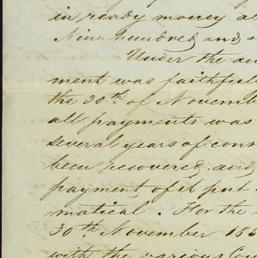 in ready money a
Nine hundred and
Under the au
ment was faithful
the 30th of Novembe
all payments was
several years of cons
been recovered and
payment of it put
matical. For the
30th November 185
with the various Co